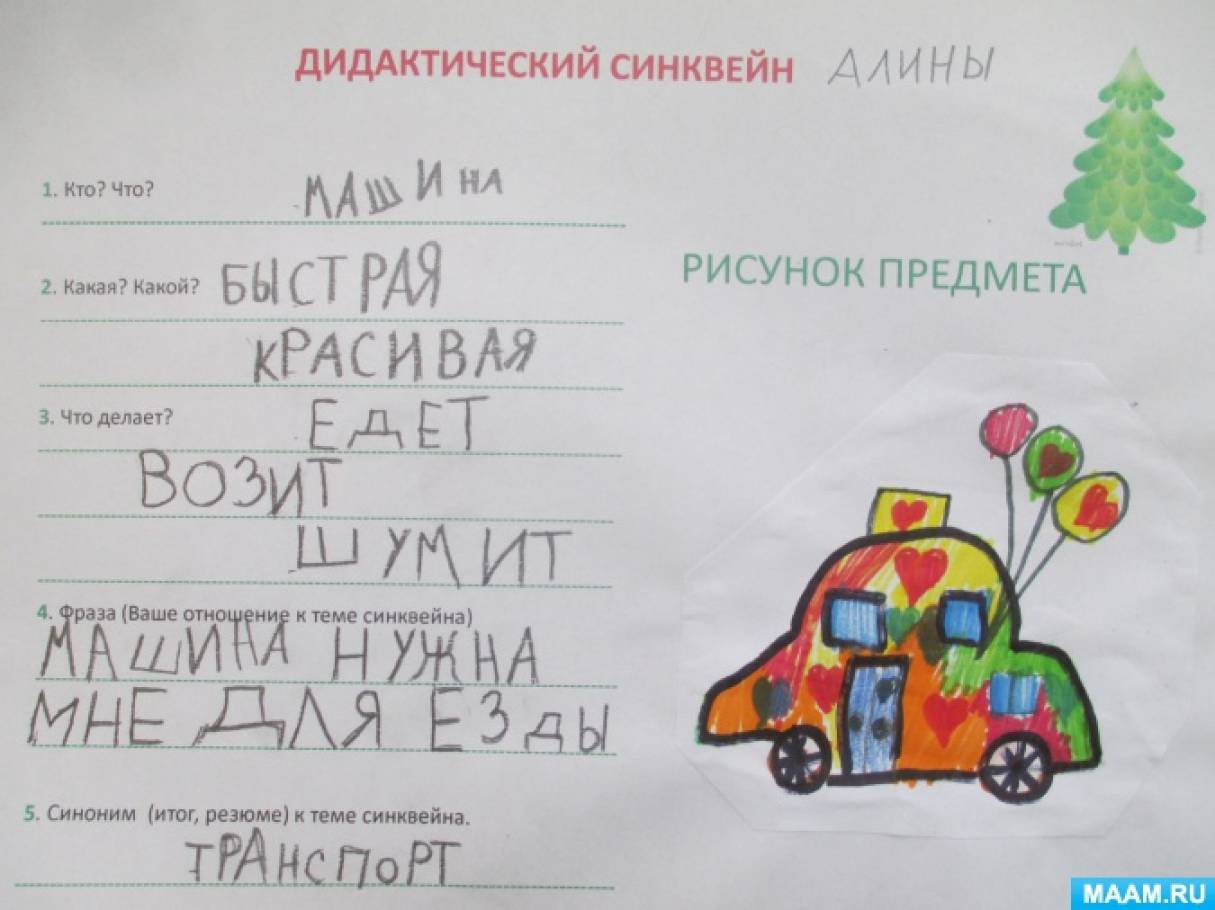 ДИДАКТИЧЕСКИЙ СИНКВЕЙН АЛИНЫ
1. Кто? Что? МАШИНА
2. Какая? Какой? БЫСТРАЯ
КРАСИВАЯ
3. Что делает? ЕДЕТ
ВОЗИТ
ШУМИТ
4. Фраза (Ваше отношение к теме синквейна)
МАШИНА НУЖНА
МНЕ ДЛЯ ЕЗДЫ
5. Синоним (итог, резюме) к теме синквейна.
ТРАНСПОРТ
РИСУНОК ПРЕДМЕТА
MAAM.RU